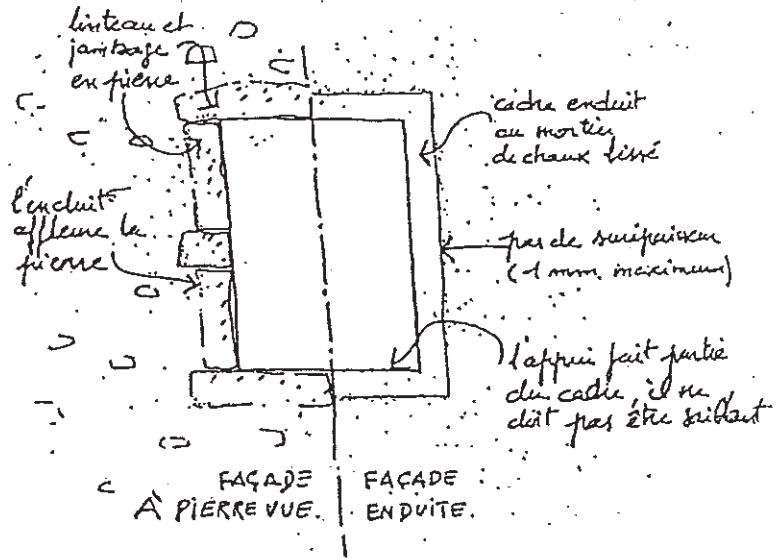 linteau et
jambage
en pierre
l'enduit
affleure la
pierre
cadre enduit
au mortier
de chaux lissé
pas de surépaisseur
(1 mm. maximum)
l'appui fait partie
du cadre, il ne
doit pas être saillant
FAÇADE
À PIERRE VUE.
FAÇADE
ENDUITE.